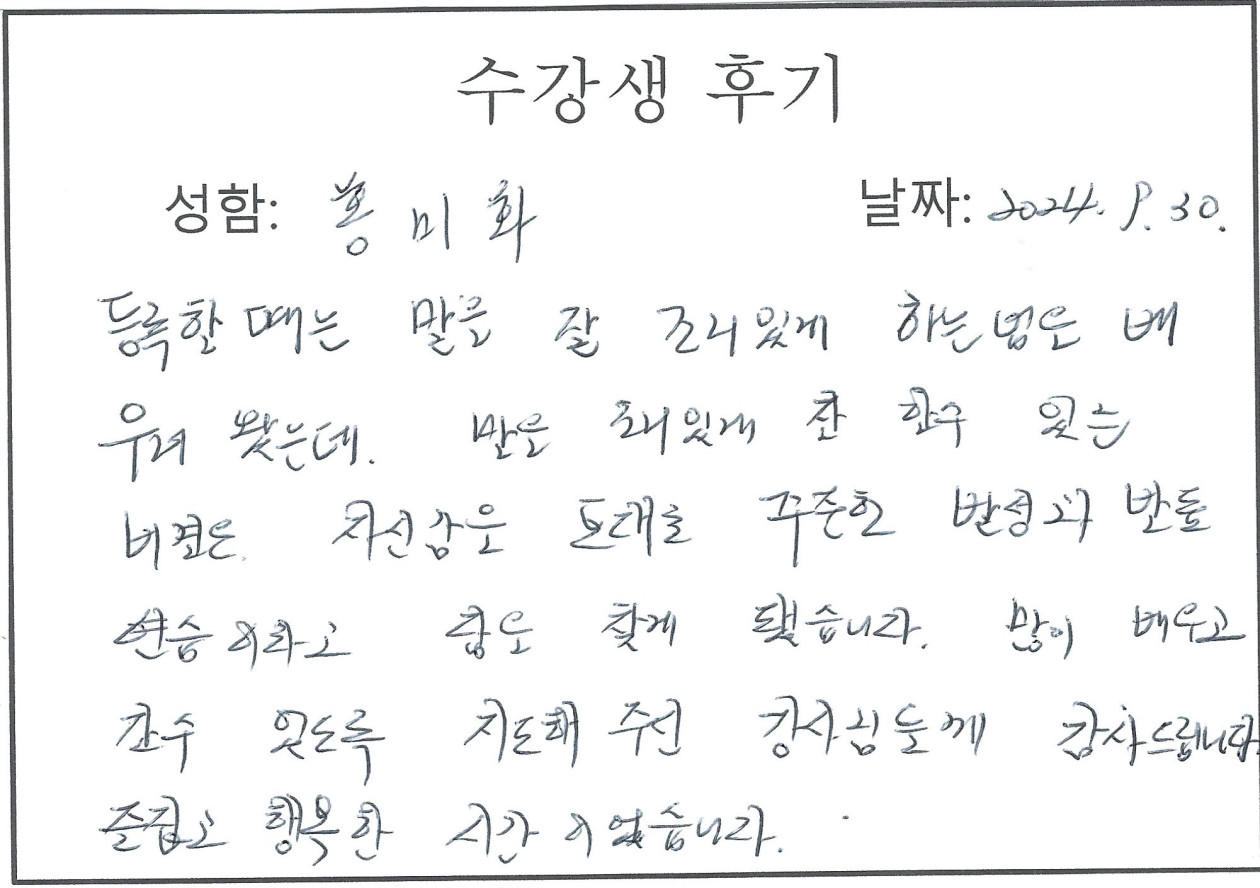 수강생 후기
성함: 홍미화 날짜: 2024. 9. 30.
등록할 때는 말을 잘 조리있게 하는 법을 배
우려 왔는데. 말을 조리있게 잘 할수 있는
비결은. 자신감을 토대로 꾸준한 발성과 반복
연습이라고 답을 찾게 됐습니다. 많이 배우고
갈수 있도록 지도해 주신 강사님들께 감사드립니다
즐겁고 행복한 시간이었습니다.